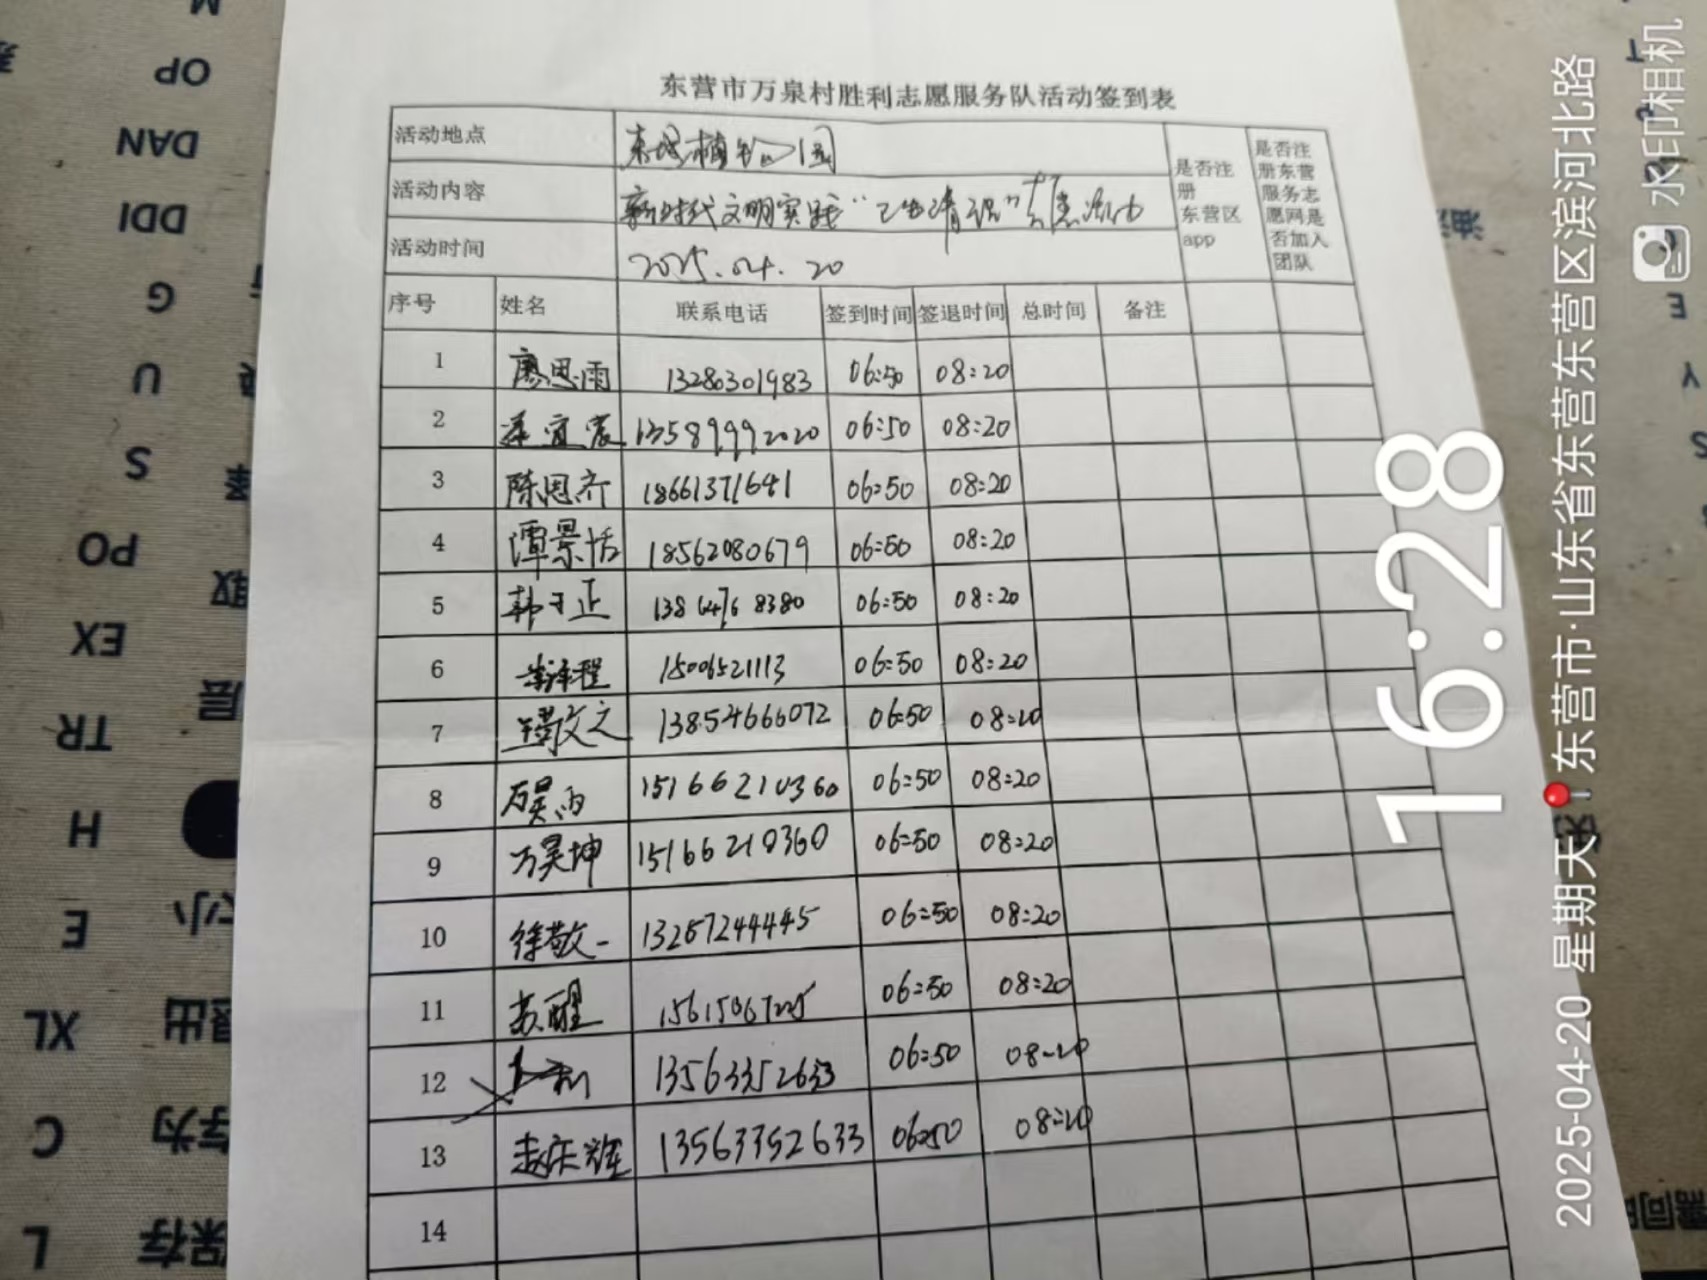 东营市万泉村胜利志愿服务队活动签到表
活动地点
活动内容 新时代文明实践
活动时间 2025.04.20
是否注册东营区app
是否注册东营服务志愿网是否加入团队
序号 姓名 联系电话 签到时间 签退时间 总时间 备注
1 廖思雨 13280301983 06:50 08:20
2 13589992020 06:50 08:20
3 陈思齐 18661371641 06:50 08:20
4 谭景恬 18562080679 06:50 08:20
5 韩于正 13864768380 06:50 08:20
6 15006521113 06:50 08:20
7 13854666072 06:50 08:20
8 万昊雨 15166210360 06:50 08:20
9 万昊坤 15166210360 06:50 08:20
10 徐敬一 13267244445 06:50 08:20
11 苏醒 06:50 08:20
12 13563352633 06:50 08-20
13 赵庆辉 13563352633 06:50 08:20
14
16:28
2025-04-20 星期天 东营市·山东省东营东营区滨河北路
水印相机
M
OP
DAN
DDI
G
U
S
PO
EX
TR
H
E
XL
C
L
保存